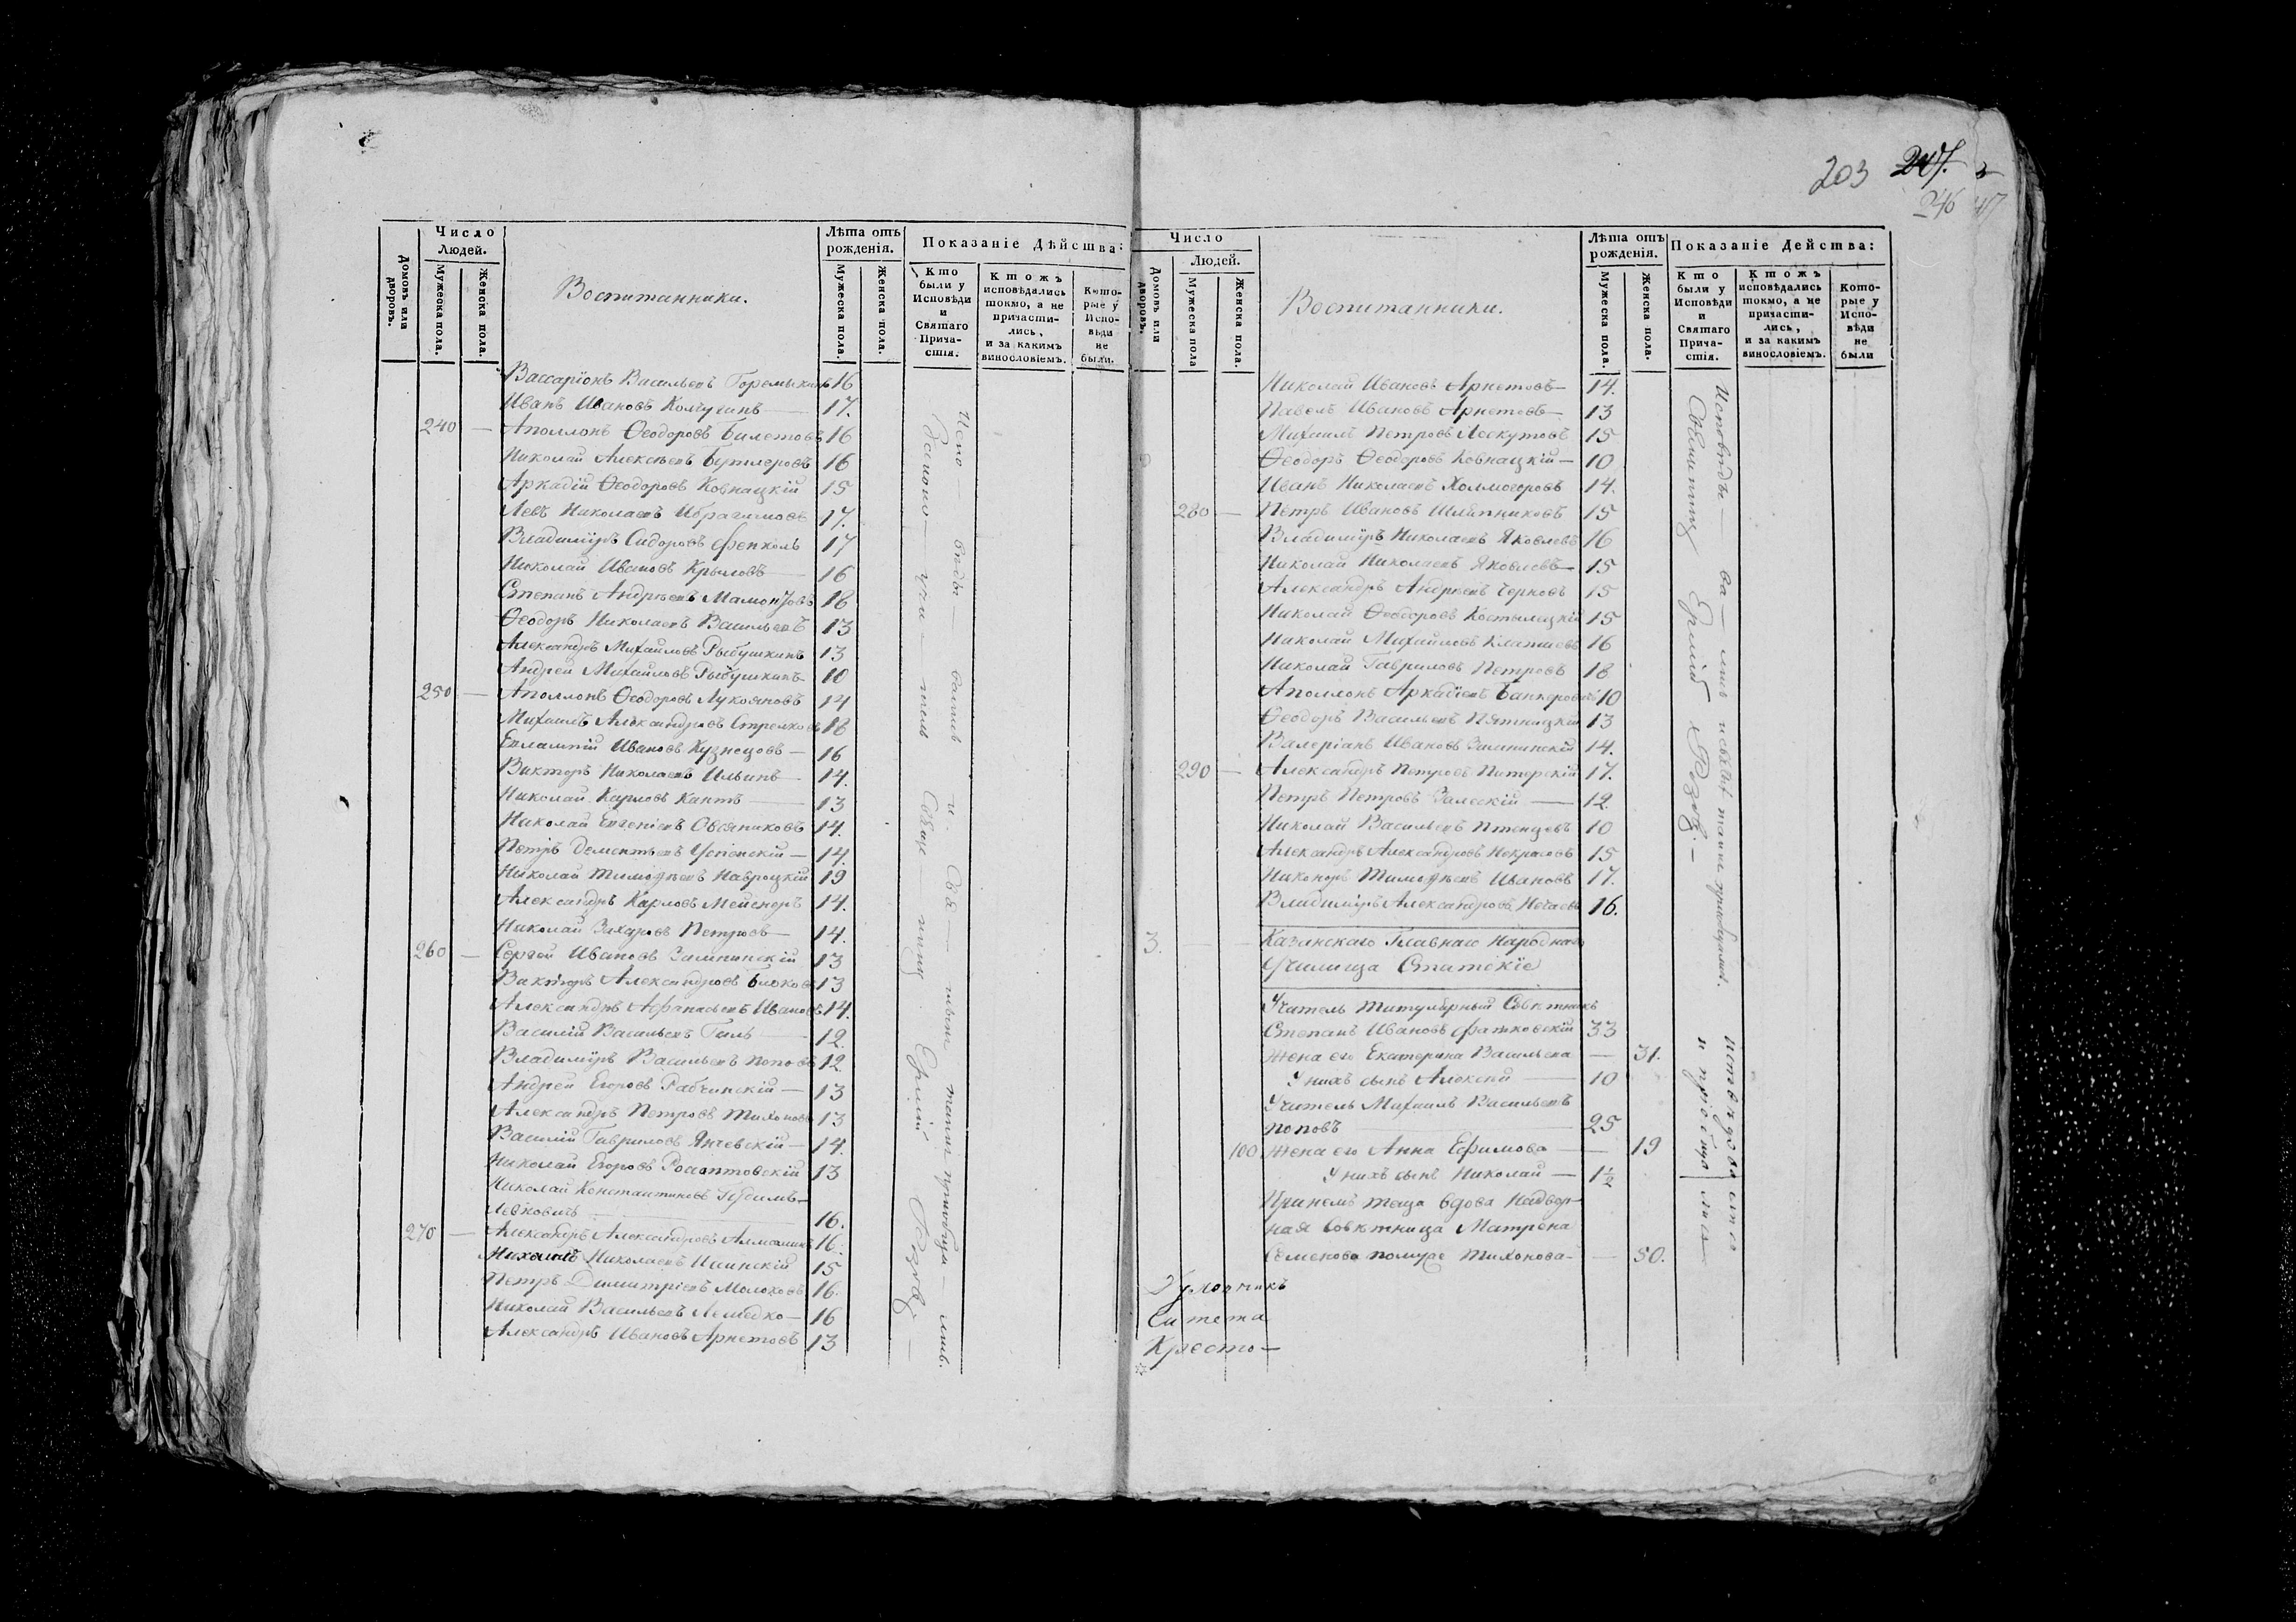 203 247.
246
Число
Людей.
Домовъ или дворовъ.
Мужеска пола.
Женска пола.
Воспитанники.
Лѣта отъ рожденія.
Мужеска пола.
Женска пола.
Показаніе Дѣйства:
Кто были у Исповѣди и Святаго Прича-стія.
Ктожъ исповѣдались токмо, а не причасти-лись, и за какимъ винословіемъ.
Кото-рые у Испо-вѣди не были.
Вассаріонъ Васильевъ Горемыкинъ 16
Иванъ Ивановъ Колчугинъ — 17.
240 — Аполлонъ Ѳеодоровъ Билетовъ 16
Николай Алексѣевъ Бутлеровъ 16
Аркадій Ѳеодоровъ Ковнацкій 15
Левъ Николаевъ Ибрагимовъ 17.
Владиміръ Сидоровъ 17
Николай Ивановъ Крыловъ — 16
Степанъ Андреевъ Мамонтовъ 18
Ѳеодоръ Николаевъ Васильевъ 13
Александръ Михайловъ Рыбушкинъ 13
Андрей Михайловъ Рыбушкинъ 10
250 — Аполлонъ Ѳеодоровъ Лукояновъ 14
Михаилъ Александровъ Стрелковъ 18
Евлампій Ивановъ Кузнецовъ — 16
Викторъ Николаевъ Ильинъ — 14.
Николай Карловъ Кантъ — 13
Николай Евгеніевъ Овсяниковъ 14.
Петръ Дементьевъ Успенскій — 14.
Николай Тимоѳѣевъ Навроцкій 19
Александръ Карловъ Мейснеръ 14.
Николай Захаровъ Петровъ — 14.
260 — Сергей Ивановъ 13
Викторъ Александровъ 13
Александръ Афанасьевъ Ивановъ 14.
Василій Васильевъ Гиль — 12.
Владиміръ Васильевъ Поповъ 12.
Андрей Егоровъ Рабчинскій — 13
Александръ Петровъ Тихоновъ 13
Василій Гавриловъ Янчевскій — 14.
Николай Егоровъ 13
Николай Константиновъ
16.
270 — Александръ Александровъ 16.
Михаилъ Николаевъ 15
Петръ Димитріевъ Молоховъ 16.
Николай Васильевъ 16
Александръ Ивановъ Арнетовъ 13
Число
Людей.
Домовъ или дворовъ.
Мужеска пола
Женска пола.
Воспитанники.
Лѣта отъ рожденія.
Мужеска пола.
Женска пола.
Показаніе Действа:
Кто были у Исповѣди и Святаго Прича-стія.
Ктожъ исповѣдались токмо, а не причасти-лись, и за какимъ винословіемъ.
Кото-рые у Испо-вѣди не были
Николай Ивановъ Арнетовъ — 14.
Павелъ Ивановъ Арнетовъ — 13
Михаилъ Петровъ Лоскутовъ 15
Ѳеодоръ Ѳеодоровъ Ковнацкій — 10
Иванъ Николаевъ Холмогоровъ 14.
280 — Петръ Ивановъ Шляпниковъ 15
Владиміръ Николаевъ Яковлевъ 16
Николай Николаевъ Яковлевъ — 15
Александръ Андреевъ Черновъ 15
Николай Ѳеодоровъ 15
Николай Михайловъ 16
Николай Гавриловъ Петровъ 18
Аполлонъ Аркадіевъ 10
Ѳеодоръ Васильевъ Пятницкій 13
Валеріанъ Ивановъ 14.
290 — Александръ Петровъ Питерскій 17.
Петръ Петровъ Залескій — 12.
Николай Васильевъ Птенцевъ 10
Александръ Александровъ Некрасовъ 15
Никоноръ Тимоѳѣевъ Ивановъ 17.
Владиміръ Александровъ Нечаевъ 16.
3. Казанскаго Главнаго Народнаго
Училища Статскіе
Учитель Титулярный Совѣтникъ
Степанъ Ивановъ 33
Жена его Екатерина Васильева — 31.
У нихъ сынъ Алексей — 10
Учитель Михаилъ Васильевъ
Поповъ — 25
100 Жена его Анна Ефимова — 19
У нихъ сынъ Николай — 1½
При немъ теща вдова Надвор-
ная Совѣтница Матрена
Семенова по мужѣ Тихонова — 50.
Кресто —